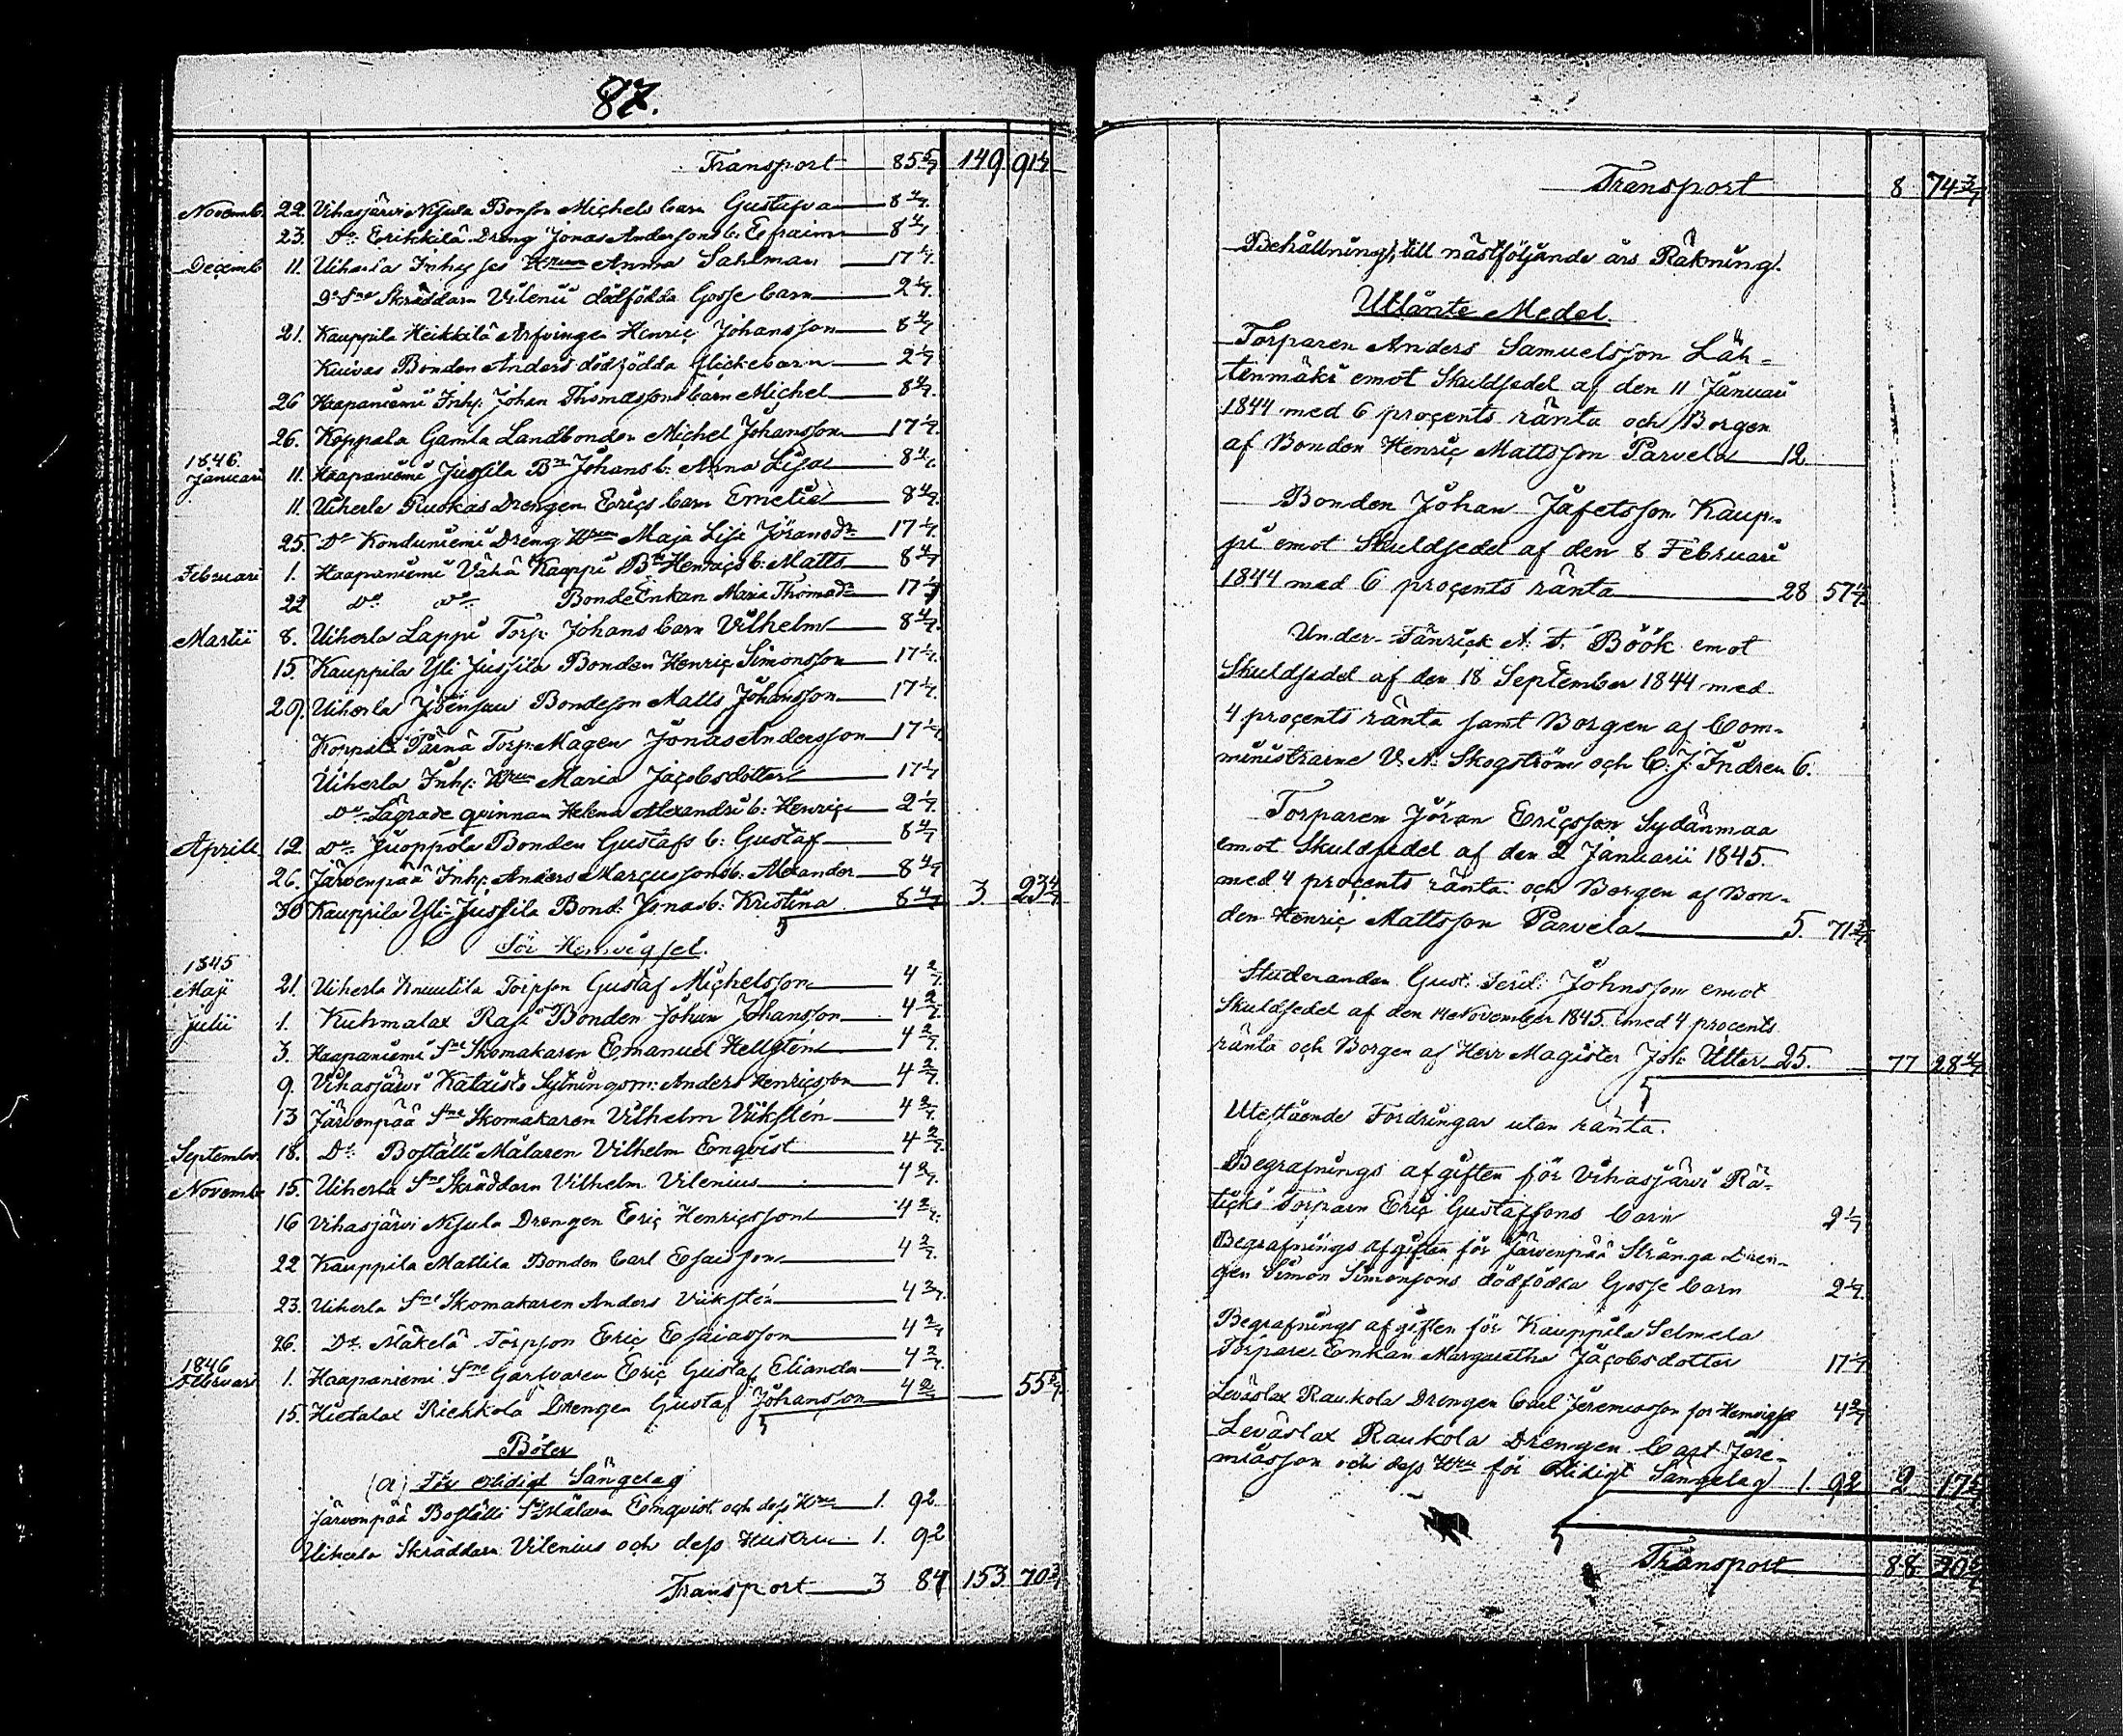 87.
Transport 85 5/7 149 91 4/7
Novemb. 22. Vihasjärvi Nisula Bonson Michels barn Gustafva 8 4/7.
23. Do Erikkilä Dreng Jonas Anderssons b. Efraim 8 4/7
Decemb. 11. Uiherla Inhyses Hrun Anna Sahlman 17 1/7.
Do Sne Skräddarn Vilenii dödfödda Gosse barn 2 1/7.
21. Kauppila Heikkilä Arfvingen Henric Johansson 8 4/7
Kuivas Bonden Anders dödfödda flickebarn 2 1/7
26 Haapaniemi Inh. Johan Thomassons barn Michel 8 4/7.
26. Koppala Gamla Landbonden Michel Johansson 17 1/7.
1846.
Januari 11. Haapaniemi Jussila Bn Johans b. Anna Lisa 8 4/7.
11. Uiherla Ruokas Drengen Erics barn Emelie 8 4/7.
25. Do Konduniemi Dreng Hrun Maja Lisa Jöransdr 17 1/7.
Februari 1. Haapaniemi Vähä Kaappi Bn Henrics b. Matts 8 4/7
22 do do Bonde Enkan Maria Thomasdr 17 1/7
Martii 8. Uiherla Lappi Torp. Johans barn Vilhelm 8 4/7.
15. Kauppila Yli Jussila Bonden Henric Simonsson 17 1/7.
29. Uiherla Jöensuu Bondeson Matts Johansson 17 1/7.
Koppala Pärnä Torp. Mågen Jonas Andersson 17 1/7
Uiherla Inh. Hrun Maria Jacobsdotter 17 1/7
Do Lägrade qvinnan Helena Alexandri b. Henric 2 1/7.
Aprill 12. do Juoppola Bonden Gustafs b. Gustaf 8 4/7
26. Järvenpää Inh. Anders Marcussons b. Alexander 8 4/7
30 Kauppila Yli-Jussila Bond. Jonas b. Kristina 8 4/7 3 23 4/7
För Hemvigsel.
1845
Maji 21. Uiherla Knuutila Torpson Gustaf Michelsson 4 2/7.
Julii 1. Kuhmalax Rasi Bonden Johan Johansson 4 2/7.
3. Haapaniemi Sne Skomakaren Emanuel Hellstén 4 2/7.
9. Vihasjärvi Kataisto Sytningsm. Anders Henricsson 4 2/7.
13 Järvenpää Sne Skomakaren Vilhelm Vikstén 4 2/7.
Septembr. 18. Do Boställi Målaren Vilhelm Enqvist 4 2/7.
Novemb. 15. Uiherla Sne Skräddarn Vilhelm Vilenius 4 2/7.
16 Vihasjärvi Nisula Drengen Eric Henricsson 4 2/7.
22 Kauppila Mattila Bonden Carl Esaisson 4 2/7.
23. Uiherla Sne Skomakaren Anders Vikstén 4 2/7.
26. Do Mäkelä Torpson Eric Esaiasson 4 2/7
1846
Februari 1. Haapaniemi Sne Garfvaren Eric Gustaf Elianda 4 2/7.
15. Hietalax Riekkola Drengen Gustaf Johansson 4 2/7 55 5/7
Böter
(a) För olidigt Sängelag
Järvenpää Boställi Sne Målaren Enqvist och dess Hru 1. 92
Uiherla Skräddarn Vilenius och dess Hustru 1. 92
Transport 3 84 153 70 5/7
Transport 8 74 3/7
Behållning till nästföljande års Räkning.
Utlånte Medel.
Torparen Anders Samuelsson Läh-
tenmäki emot Skuldsedel af den 11 Januari
1844 med 6 procents ränta och Borgen
af Bonden Henric Mattsson Parvela 12
Bonden Johan Jafetsson Kaup-
pi emot Skuldsedel af den 8 Februari
1844 med 6 procents ränta 28 57 1/7
Under-Fänrick A. F. Böök emot
Skuldsedel af den 18 September 1844 med
4 procents ränta samt Borgen af Com-
ministrarne V. A. Skogström och C. J. Indren 6.
Torparen Jöran Ericsson Sydänmaa
emot Skuldsedel af den 2 Januarii 1845.
med 4 procents ränta och Borgen af Bon-
den Henric Mattsson Parvela 5. 71 3/7
Studeranden Gust. Ferd. Johnsson emot
Skuldsedel af den 14 November 1845. med 4 procents
ränta och Borgen af Herr Magister Joh. Utter 25. 77 28 4/7
Utestående Fordringar utan ränta.
Begrafnings afgiften för Vihasjärvi Rä-
ticki Torparn Eric Gustafssons barn 2 1/7
Begrafnings afgiften för Järvenpää Stränga Dren-
gen Simon Simonsons dödfödda Gosse barn 2 1/7.
Begrafnings afgiften för Kauppila Selmela
Torpare Enkan Margaretha Jacobsdotter 17 1/7
Leväslax Raukola Drengen Carl Jeremiasson för Hemvigsel 4 2/7
Leväslax Raukola Drengen Carl Jere-
miasson och dess Hru för olidigt Sängelag 1. 92 2 17 5/7
Transport 88 20 5/7